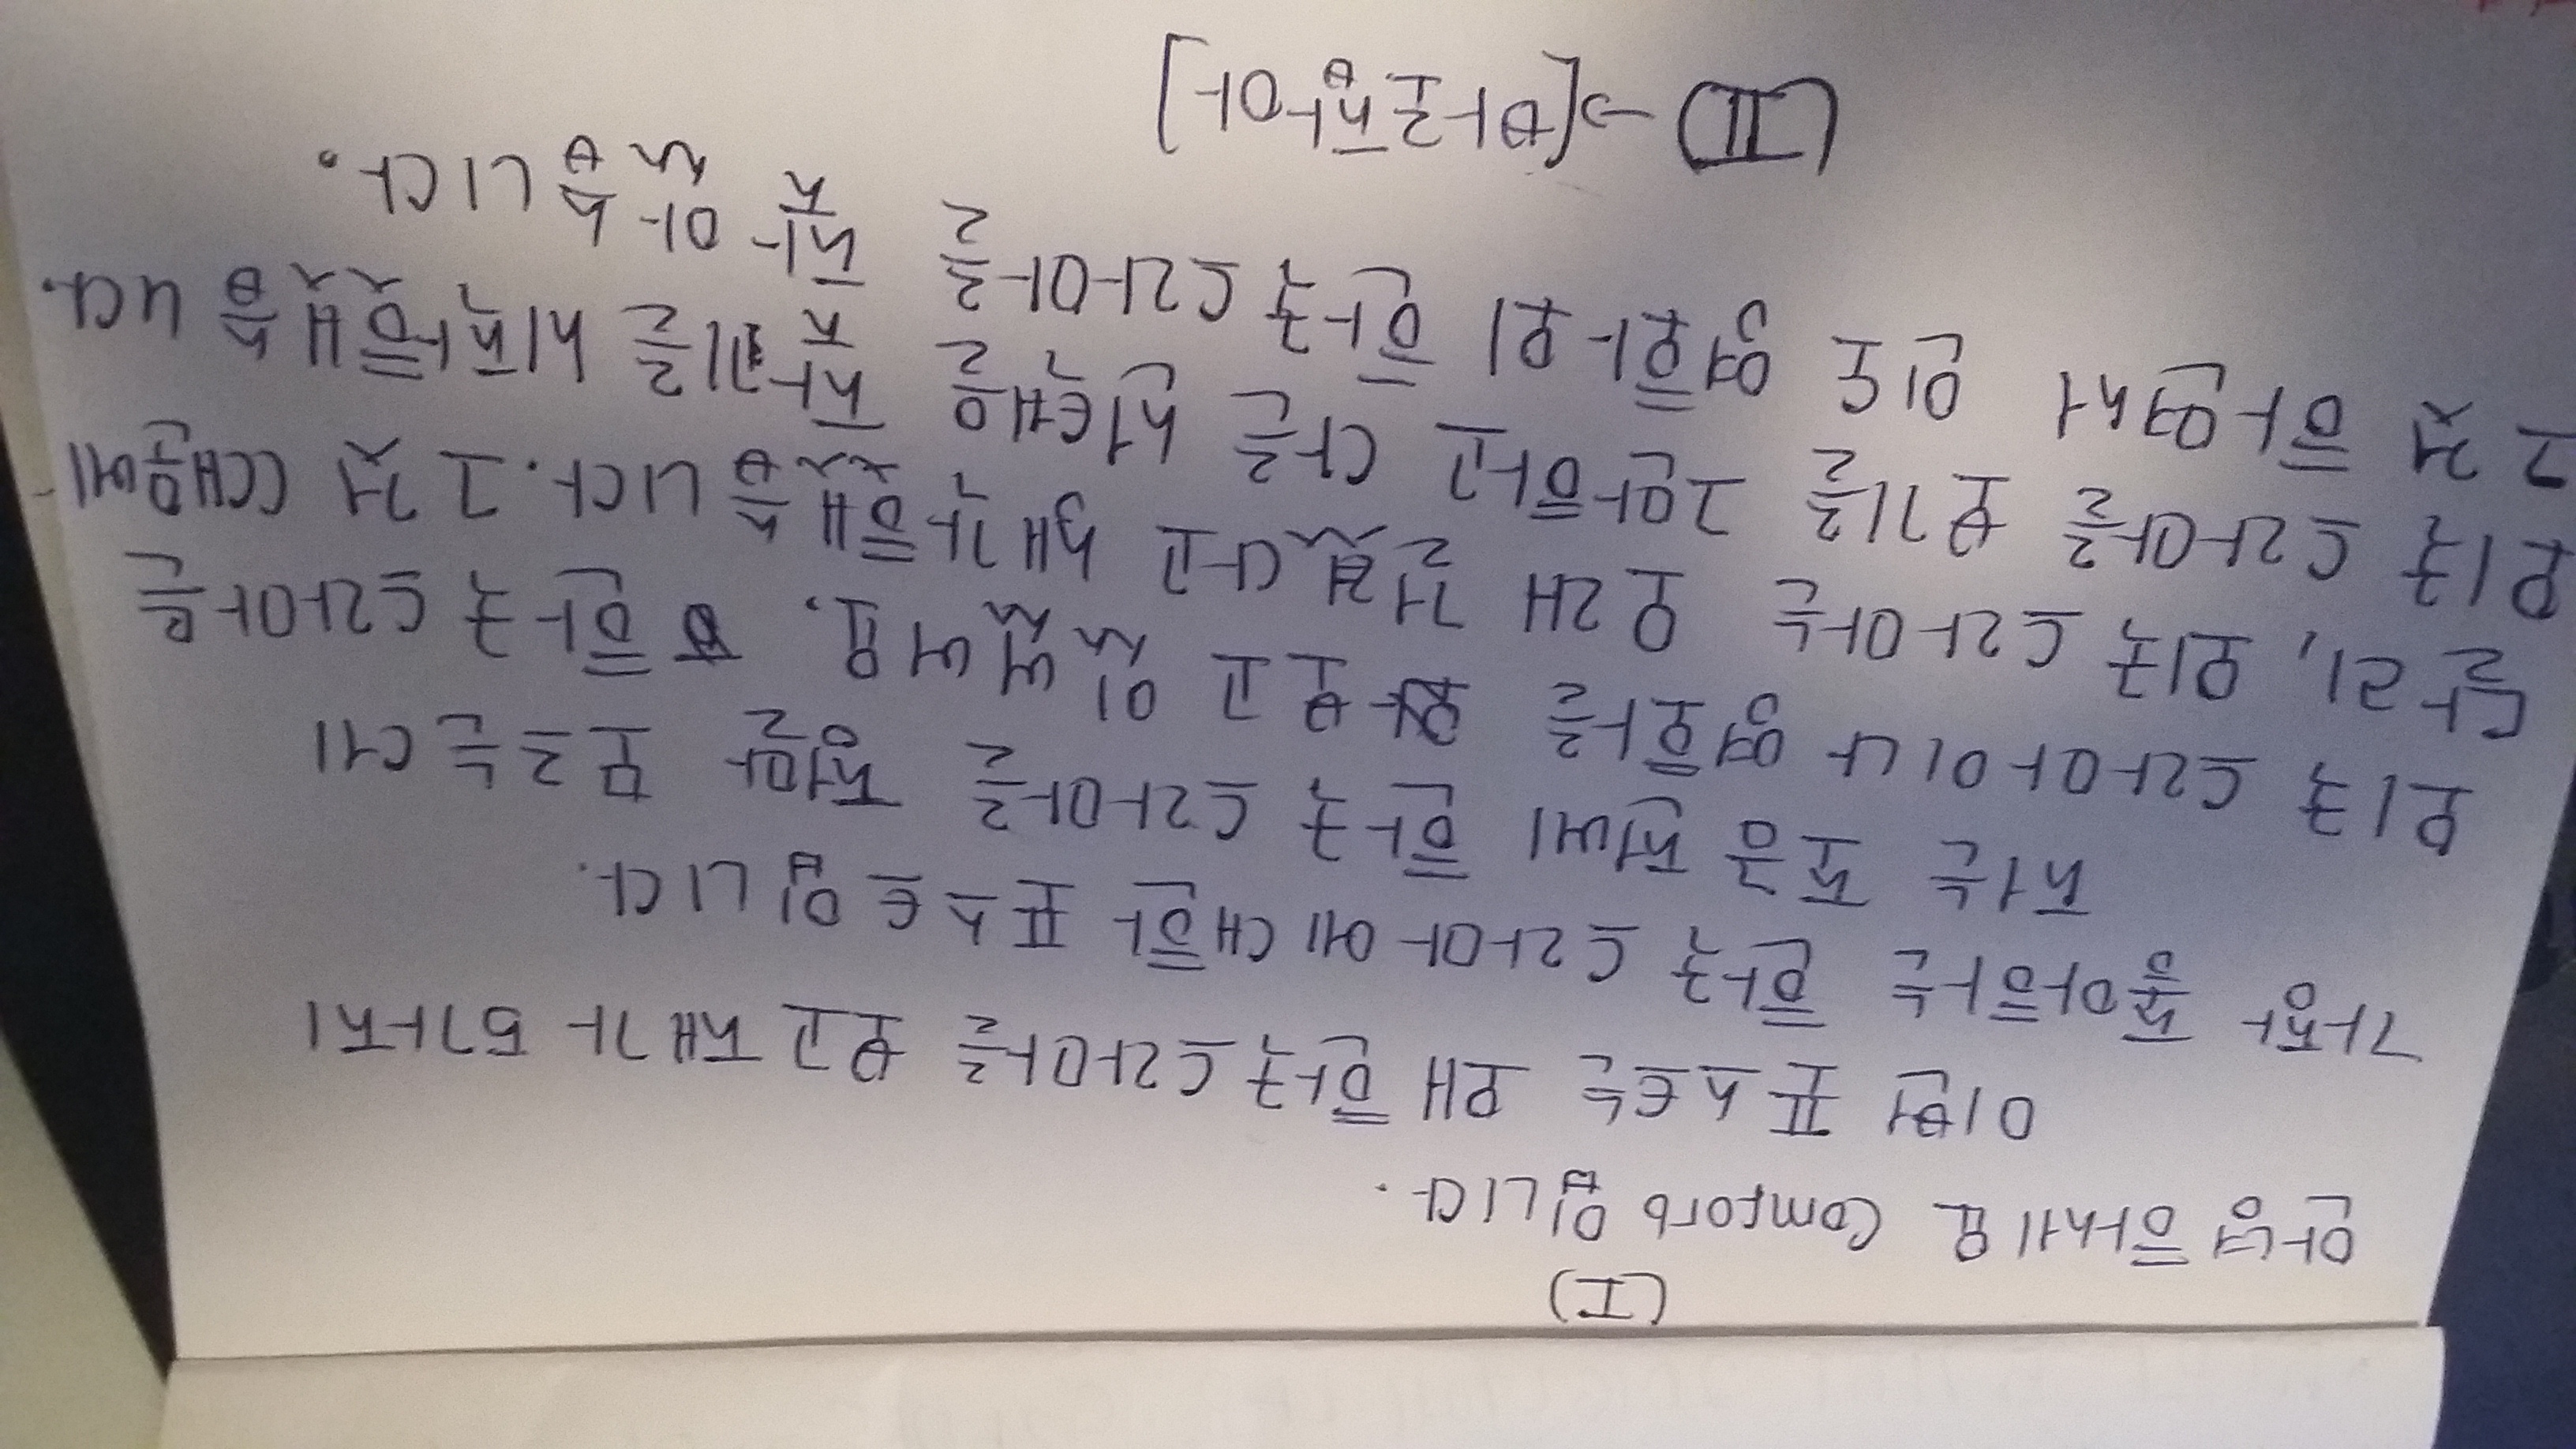 (I)
안녕하세요 Comforb 입니다.
이번 포스트는 왜 한국드라마를 보고 재가 5가지
가장 좋아하는 한국 드라마에대한 포스트입니다.
저는 조금 전에 한국 드라마를 정말 모르는데
외국 드라마이나 영화를 보고 있었어요. 한국드라마은
달리, 외국 드라마는 오래 걸렸다고 생각했습니다. 그것 때문에
외국 드라마를 보기를 그만하고 다른 선택을 찾기를 시작했습니다.
그것 하면서 인도 영화외 한국드라마를 찾았습니다.
(II) → [바로잡아]